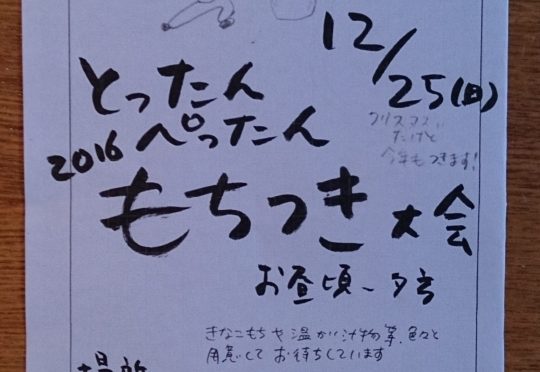 12/25(日)
とったん
ぺったん
2016
クリスマス
だけど
今年もつきます!
もちつき大会
お昼頃〜夕方
きなこもちや温かい汁物等、色々と
用意してお待ちしています
場所